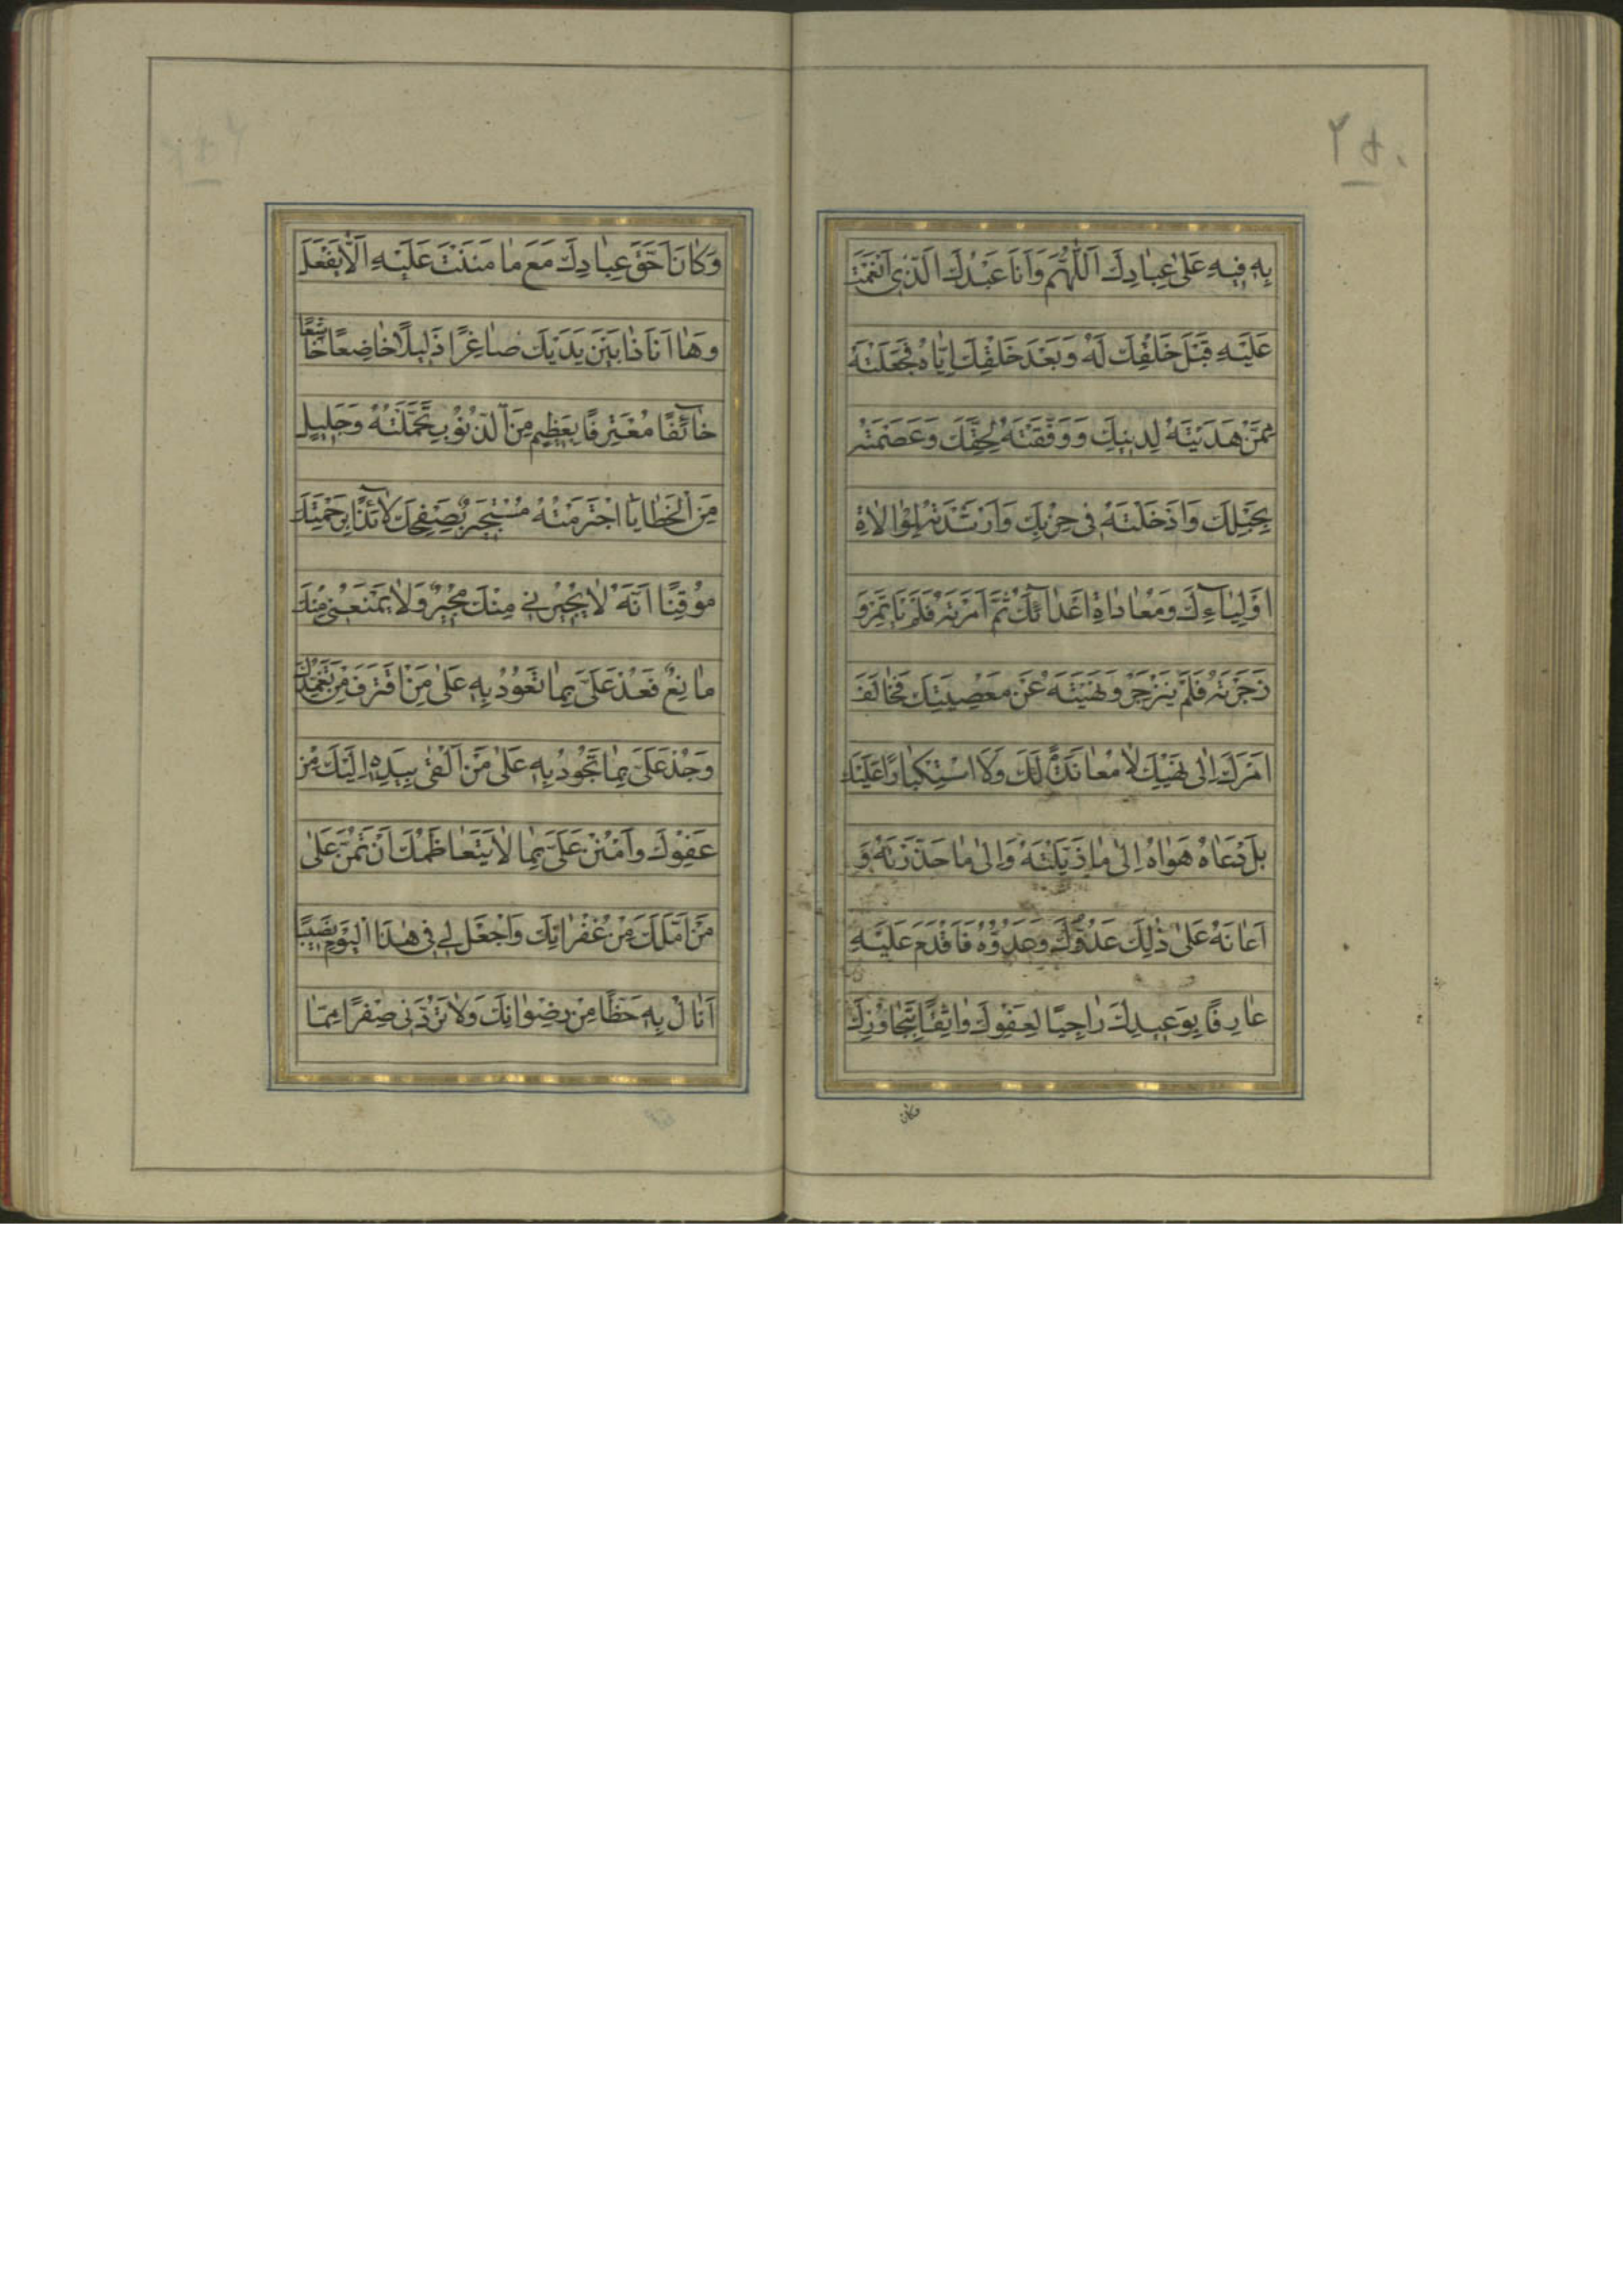 ٢٥٠
بِهِ فِيهِ عَلىٰ عِبٰادِكَ اَللّٰهُمَّ وَاَنَا عَبْدُكَ الَّذِى اَنْعَمْتَ
عَلَيْهِ قَبْلَ خَلْقِكَ لَهُ وَبَعْدَ خَلْقِكَ اِيّٰاهُ فَجَعَلْتَهُ
مِمَّنْ هَدَيْتَهُ لِدِينِكَ وَوَفَّقْتَهُ لِحَقِّكَ وَعَصَمْتَهُ
بِحَبْلِكَ وَاَدْخَلْتَهُ فِى حِزْبِكَ وَاَرْشَدْتَهُ لِمُوٰالاٰةِ
اَوْلِيٰآءِكَ وَمُعٰادٰاةِ اَعْدٰآئِكَ ثُمَّ اَمَرْتَهُ فَلَمْ يَاْتَمِرْ وَ
زَجَرْتَهُ فَلَمْ يَنْزَجِرْ وَنَهَيْتَهُ عَنْ مَعْصِيَتِكَ فَخٰالَفَ
اَمْرَكَ اِلىٰ نَهْيِكَ لاٰ مُعٰانَدَةً لَكَ وَلاَ اسْتِكْبٰارًا عَلَيْكَ
بَلْ دَعٰاهُ هَوٰاهُ اِلىٰ مٰا زَيَّلْتَهُ وَاِلىٰ مٰا حَذَّرْتَهُ وَ
اَعٰانَهُ عَلىٰ ذٰلِكَ عَدُوُّكَ وَعَدُوُّهُ فَاَقْدَمَ عَلَيْهِ
عٰارِفًا بِوَعِيدِكَ رٰاجِيًا لِعَفْوِكَ وٰاثِقًا بِتَجٰاوُزِكَ
وكان
وَكٰانَ اَحَقَّ عِبٰادِكَ مَعَ مٰا مَنَنْتَ عَلَيْهِ اَلاّٰ يَفْعَلَ
وَهٰا اَنَا ذٰا بَيْنَ يَدَيْكَ صٰاغِرًا ذَلِيلًا خٰاضِعًا خٰاشِعًا
خٰآئِفًا مُعْتَرِفًا بِعَظِيمٍ مِنَ الذُّنُوبِ تَحَمَّلْتُهُ وَجَلِيلٍ
مِنَ الْخَطٰايٰا اجْتَرَمْتُهُ مُسْتَجِيرًا بِصَفْحِكَ لاٰئِذًا بِرَحْمَتِكَ
مُوقِنًا اَنَّهُ لاٰ يُجِيرُنِى مِنْكَ مُجِيرٌ وَلاٰ يَمْنَعُنِى مِنْكَ
مٰانِعٌ فَعُدْ عَلَىَّ بِمٰا تَعُودُ بِهِ عَلىٰ مَنِ اقْتَرَفَ مِنْ تَغَمُّدِكَ
وَجُدْ عَلَىَّ بِمٰا تَجُودُ بِهِ عَلىٰ مَنْ اَلْقىٰ بِيَدِهِ اِلَيْكَ مِنْ
عَفْوِكَ وَامْنُنْ عَلَىَّ بِمٰا لاٰ يَتَعٰاظَمُكَ اَنْ تَمُنَّ عَلىٰ
مَنْ اَمَّلَكَ مِنْ غُفْرٰانِكَ وَاجْعَلْ لِى فِى هٰذَا الْيَوْمِ نَصِيبًا
اَنٰالُ بِهِ حَظًّا مِنْ رِضْوٰانِكَ وَلاٰ تَرُدَّنِى صِفْرًا مِمّٰا